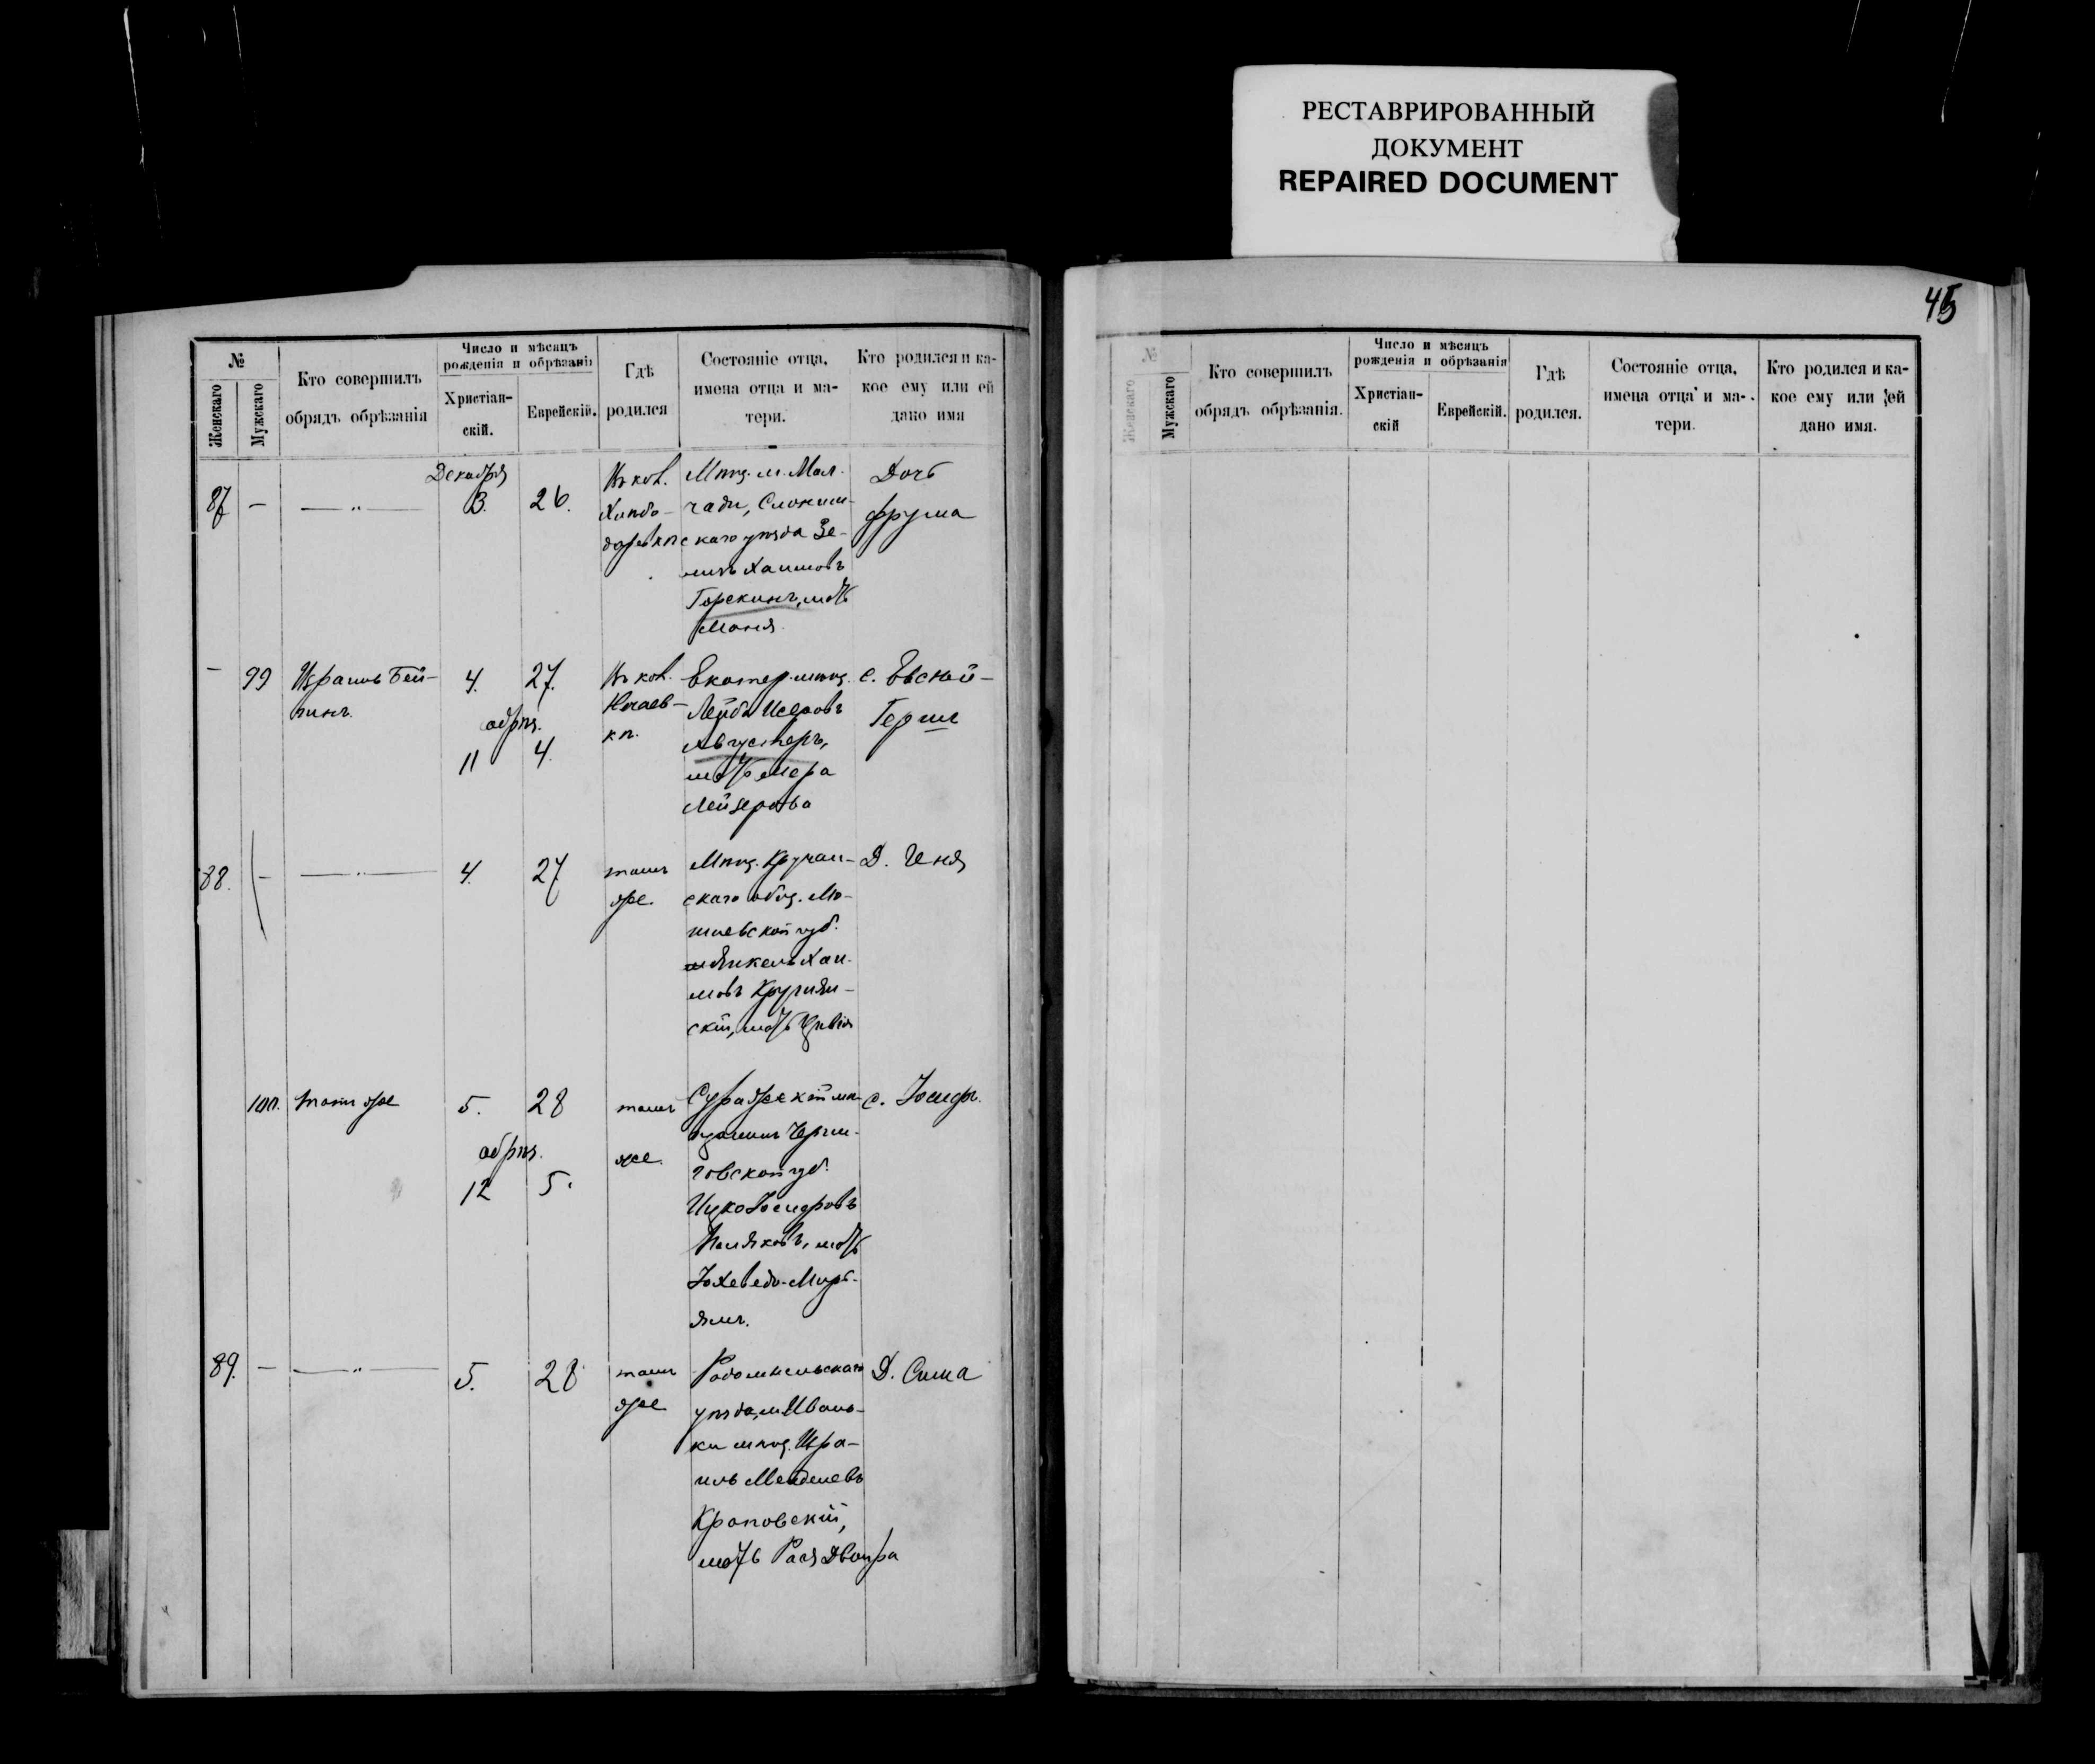 РЕСТАВРИРОВАННЫЙ
ДОКУМЕНТ
REPAIRED DOCUMENT
45
№
Женскаго
Мужскаго
Кто совершилъ
обрядъ обрѣзанія
Число и мѣсяцъ
рожденія и обрѣзанія
Христіан-
скій.
Еврейскій.
Гдѣ
родился
Состояніе отца,
имена отца и ма-
тери.
Кто родился и ка-
кое ему или ей
дано имя
87
—
— „ —
Декабря
3.
26.
Въ кол.
Мѣщ. м. Мол-
чади, Слоним-
скаго уѣзда Зе-
Хаимовъ
Горекинъ, мать
Маня.
Дочь
Фрума
—
99
Израиль Бей-
линъ.
4.
27.
обрѣз.
11
4.
Въ кол.
Нѣчаев-
кѣ.
Екатер. мѣщ.
Лейба Исеровъ
Августеръ,
мать Мера
Лейзерова
с. Евсей-
Герш
88.
—
— „ —
4.
27
тамъ
же.
Мѣщ.
скаго общ. Мо-
гилевской губ.
Янкель Хаи-
мовъ
скій, мать Цивія
Д. Геня
100.
тотъ же
5.
28
обрѣз.
12
5.
тамъ
же.
Суражскій мѣ-
щанинъ Черни-
говской губ.
Ицко Іосифовъ
Поляковъ, мать
Іохеведъ-Мирь-
ямъ.
с. Іосифъ.
89.
—
— „ —
5.
28
тамъ
же
Радомысльскаго
уѣзда, м. Ивань-
ки мѣщ. Изра-
иль Менделевъ
Краповскій,
мать Рася Двойра
Д. Сима
№
Женскаго
Мужскаго
Кто совершилъ
обрядъ обрѣзанія.
Число и мѣсяцъ
рожденія и обрѣзанія
Христіан-
скій
Еврейскій.
Гдѣ
родился.
Состояніе отца,
имена отца и ма-
тери.
Кто родился и ка-
кое ему или ей
дано имя.